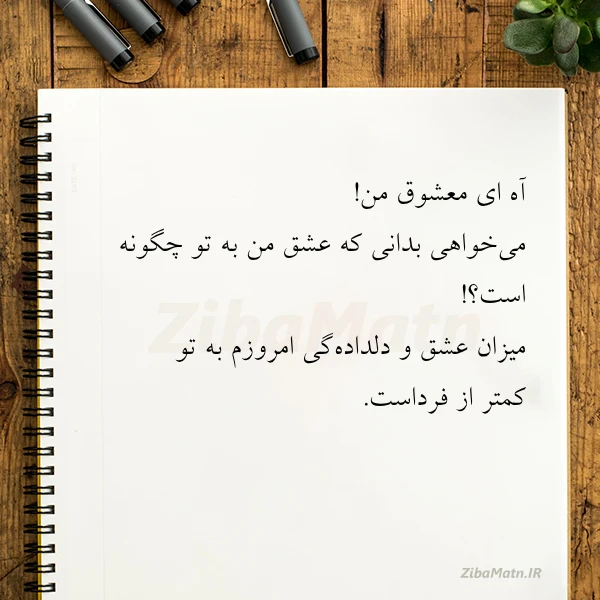 آه ای معشوق من!
می‌خواهی بدانی که عشق من به تو چگونه
است؟!
میزان عشق و دلداده‌گی امروزم به تو
کمتر از فرداست.
ZibaMatn
ZibaMatn.IR